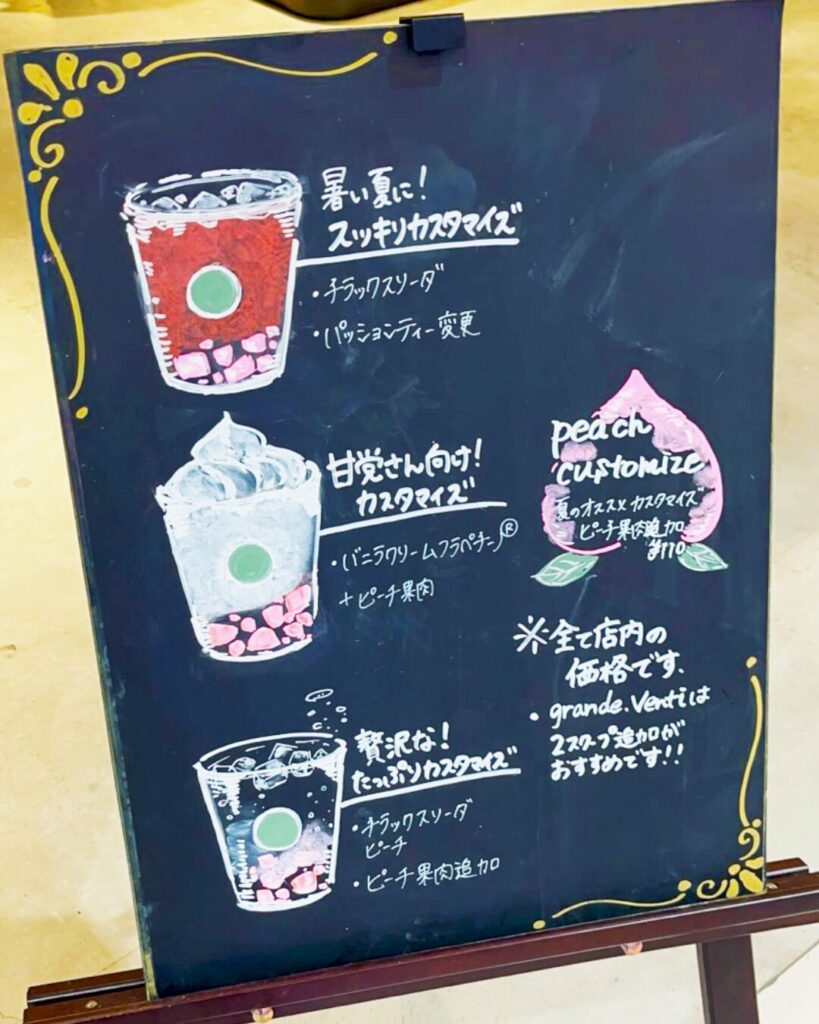 暑い夏に!
スッキリカスタマイズ
・チラックスソーダ
・パッションティー変更
甘党さん向け!
カスタマイズ
・バニラクリームフラペチーノ®
+ピーチ果肉
peach
customize
夏のオススメカスタマイズ
ピーチ果肉追加
¥110
※全て店内の
価格です.
・grande.Ventiは
2スクープ追加が
おすすめです!!
贅沢な!
たっぷりカスタマイズ
・チラックスソーダ
ピーチ
・ピーチ果肉追加